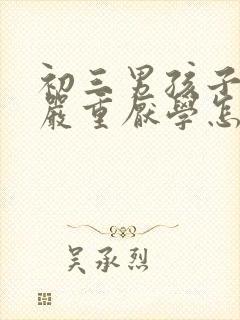 初三男孩子
嚴重厭學怎
吳承烈